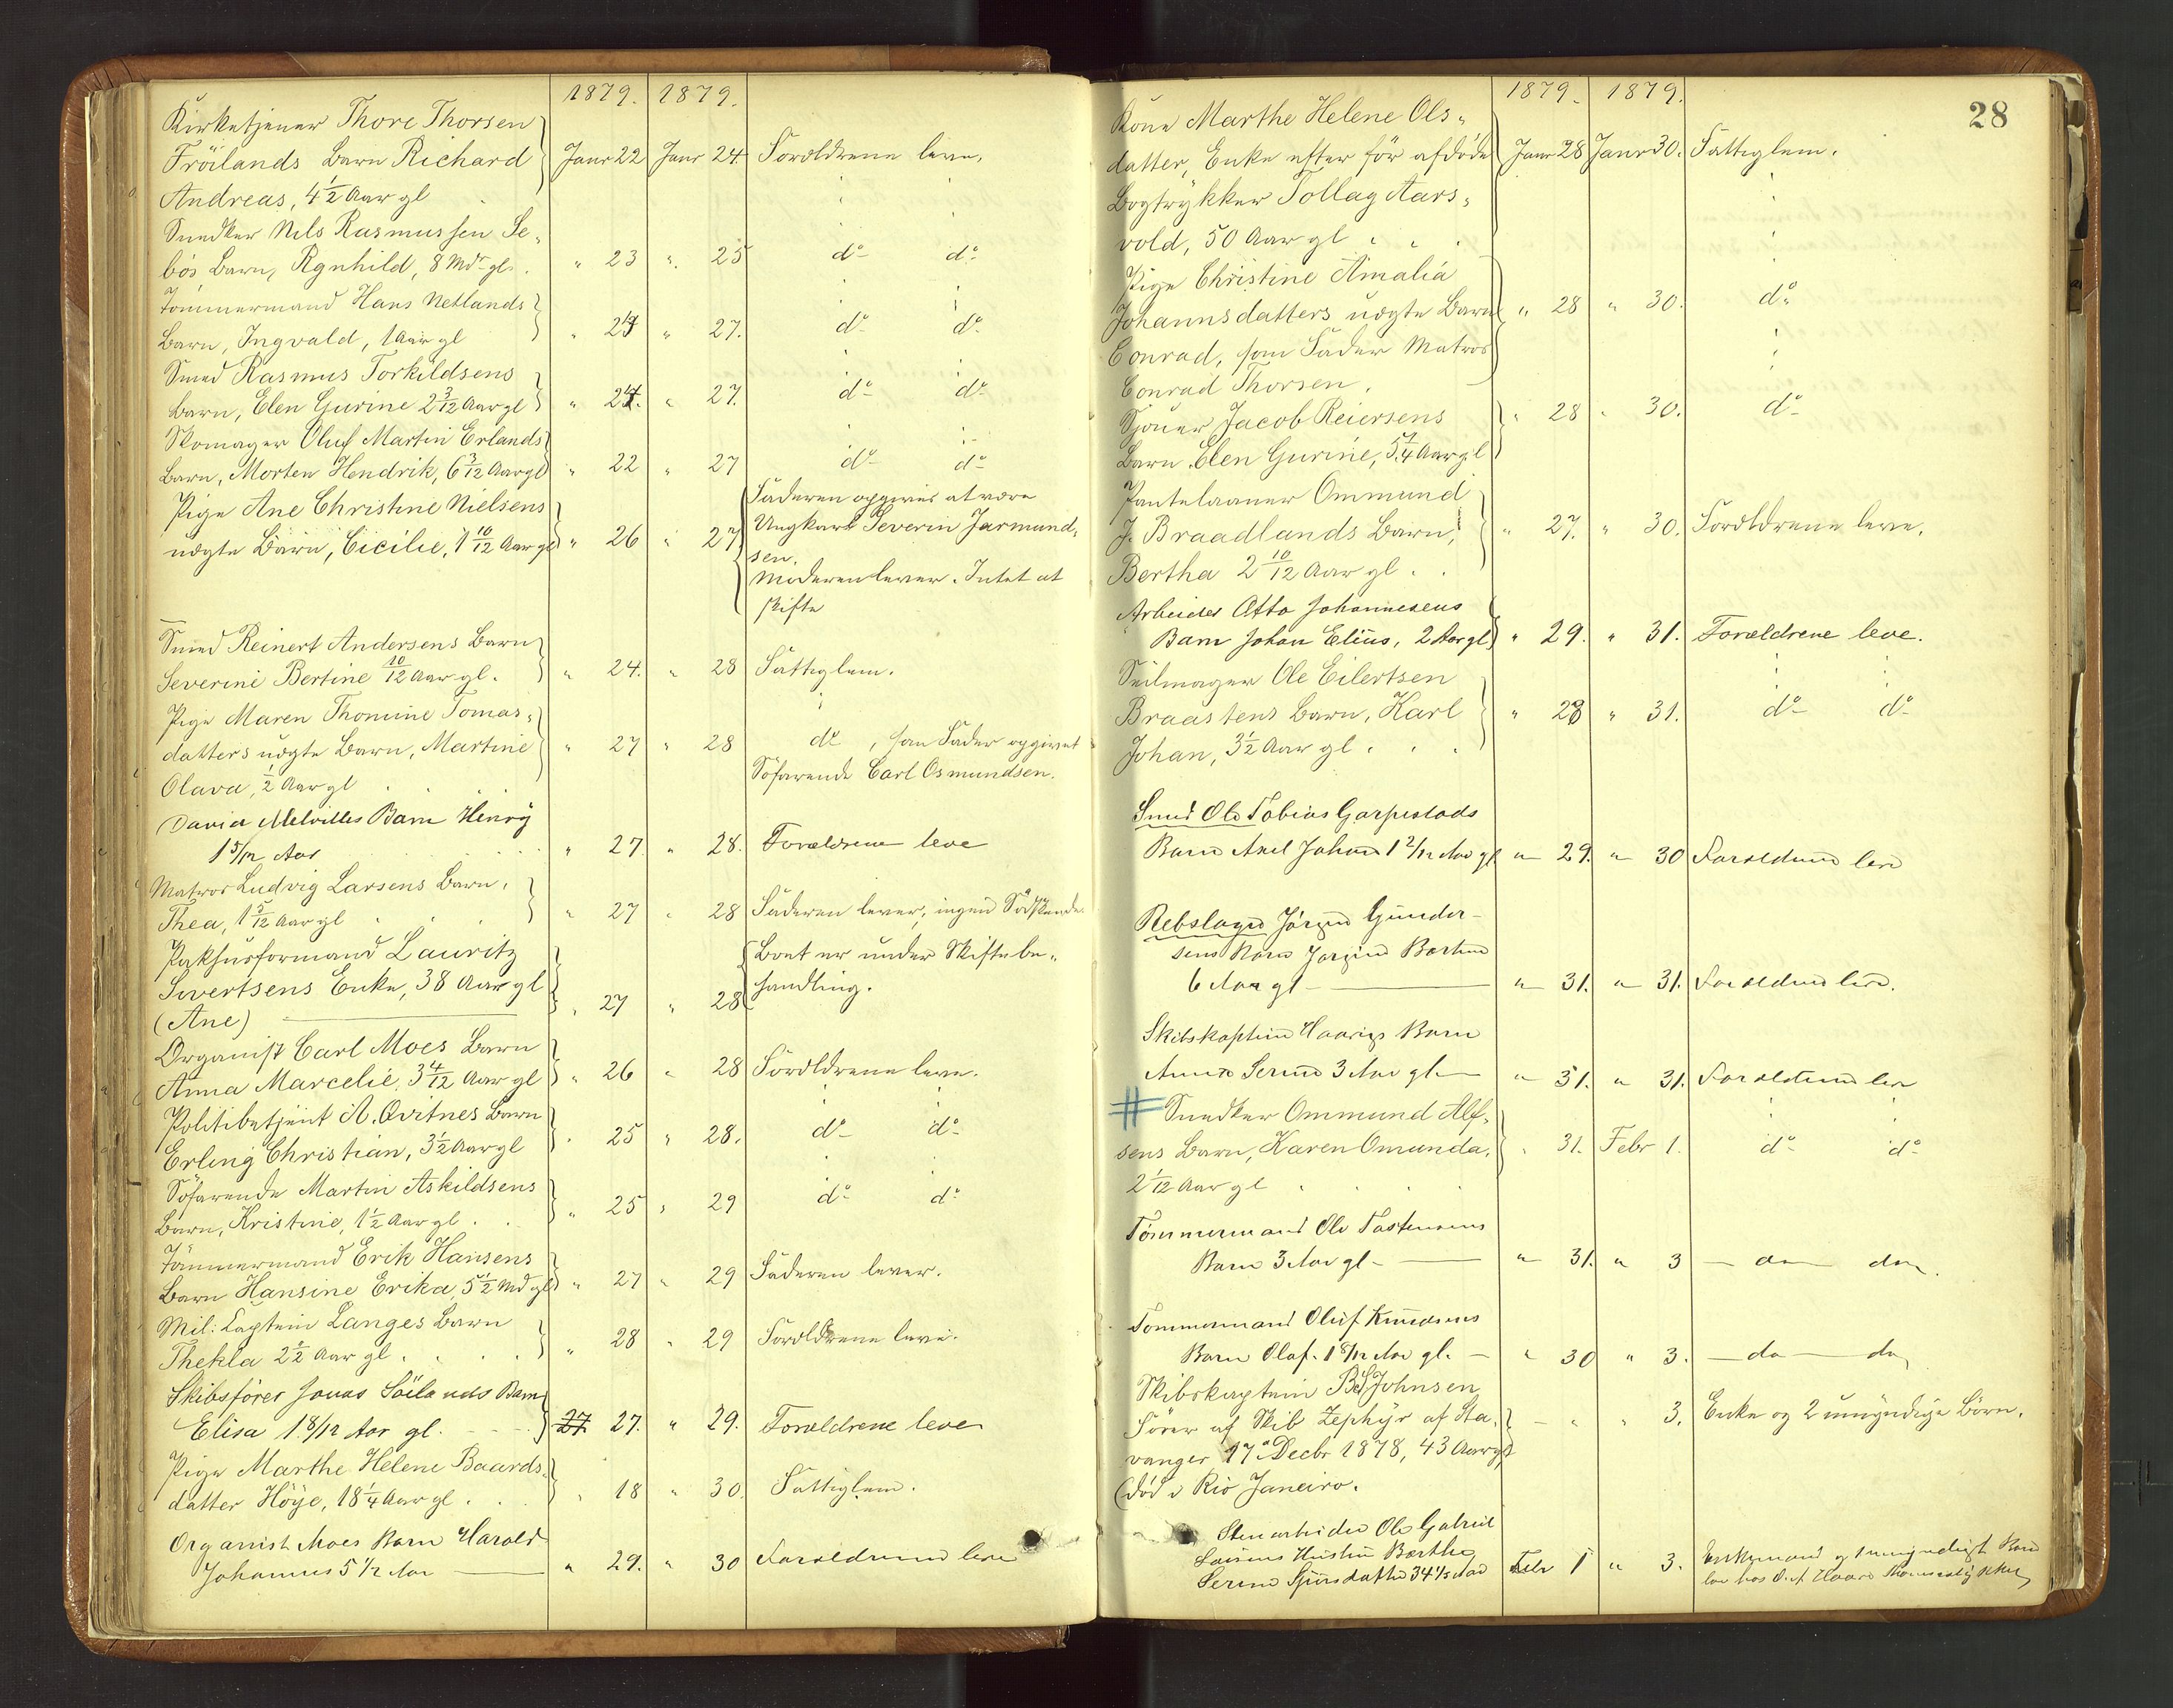 1879. 1879.
Kirketjener Thore Thorsen
Fröilands Barn Richard Janr 22 Janr 24. Forældrene leve.
Andreas, 4 1/2 Aar gl
Snedker Nils Rasmussen Se„
bös Barn, Rgnhild, 8 Mdr gl. " 23 " 25 do do
Tömmermand Hans Netlands
Barn, Ingvald, 1 Aar gl " 24 " 27. do do
Smed Rasmus Torkildsens
Barn, Elen Gurine 2 3/12 Aar gl " 24. " 27. do do
Skomager Oluf Martin Erlands
Barn, Morten Hendrik, 6 3/12 Aar gl " 22 " 27 do do
Pige Ane Christine Nielsens Faderen opgives at være
uægte Barn, Cicilie, 1 10/12 Aar gl " 26 " 27. Ungkarl Severin Jarmund„
sen.
Moderen lever. Intet at
skifte
Smed Reinert Andersens Barn
Severine Bertine 10/12 Aar gl. " 24. " 28 Fattiglem.
Pige Maren Thomine Tomas„
datters uægte Barn, Martine " 27 " 28 do, som Fader opgivet
Olava, 1/2 Aar gl Söfarende Carl Osmundsen.
David Melvilles Barn Henry
1 5/12 Aar " 27 " 28. Forældrene leve
Matros Ludvig Larsens Barn,
Thea, 1 5/12 Aar gl " 27 " 28 Faderen lever, ingen Södskende
Pakhusformand Lauritz Boet er under Skiftebe„
Sivertsens Enke, 38 Aar gl " 27 " 28 handling.
(Ane)
Organist Carl Moes Barn
Anna Marcelie, 3 4/12 Aar gl " 26 " 28 Forældrene leve.
Politibetjent A. Qvitnes Barn
Erling Christian, 3 1/2 Aar gl " 25 " 28. do do
Söfarende Martin Askildsens
Barn, Kristine, 1 1/2 Aar gl. " 25 " 29 do do
Tömmermand Erik Hansens
Barn Hansine Erika, 5 1/2 Md gl " 27 " 29 Faderen lever.
Mil: Captein Langes Barn
Thekla 2 1/2 Aar gl. " 28 " 29 Forældrene leve.
Skibsförer Jonas Söilands Barn
Elisa 1 8/12 Aar gl. 27 27. " 29. Forældrene leve
Pige Marthe Helene Baards„
datter Höye, 18 1/4 Aar gl. " 18 " 30. Fattiglem.
Organist Moes Barn Harald
Johannes 5 1/2 Aar " 29. " 30 Forældrene leve
1879. 1879. 28
Kone Marthe Helene Ols„
datter, Enke efter för afdöde Janr 28 Janr 30. Fattiglem.
Bogtrykker Tollag Aars„
vold, 50 Aar gl
Pige Christine Amalia
Johannsdatters uægte Barn " 28 " 30. do
Conrad, som Fader Matros
Conrad Thorsen.
Sjöuer Jacob Reiersens " 28 " 30. do
Barn Elen Gurine, 5 1/4 Aar gl
Pantelaaner Ommund
J. Braadlands Barn, " 27. " 30. Forældrene leve.
Bertha 2 10/12 Aar gl.
Arbeider Otto Johannesens
Barn Johan Elius, 2 Aar gl " 29. " 31. Forældrene leve.
Seilmager Ole Eilertsen
Braastens Barn, Karl " 28 " 31. do do
Johan, 3 1/2 Aar gl.
Smed Ole Tobias Garpestads
Barn Axel Johan 1 2/12 Aar gl " 29. " 30 Forældrene leve
Rebslager Jörgen Gunder-
sens Barn Jorgine Bertine
6 Aar gl " 31. " 31. Forældrene leve.
Skibskaptein Haarigs Barn
Anna Serine 3 Aar gl " 31. " 31. Forældrene leve
# Snedker Ommund Alf„
sens Barn, Karen Omunda, " 31. Febr 1. do do
2 1/12 Aar gl
Tömmermand Ole Tastensens
Barn 3 Aar gl. " 31. " 3 do do
Tömmermand Oluf Knudsens
Barn Olaf. 1 8/12 Aar gl. " 30 " 3. do do
Skibskaptein B. S. Johnsen
Förer af Skib Zephyr af Sta„ " " 3. Enke og 2 umyndige Börn.
vanger 17 Decbr 1878, 43 Aar gl
(död i Rio Janeiro.
Stenarbeider Ole Gabriel
Hustru Berthe Febr 1 " 3. Enkemand og 1 umyndigt Barn
Serine 34 1/3 Aar